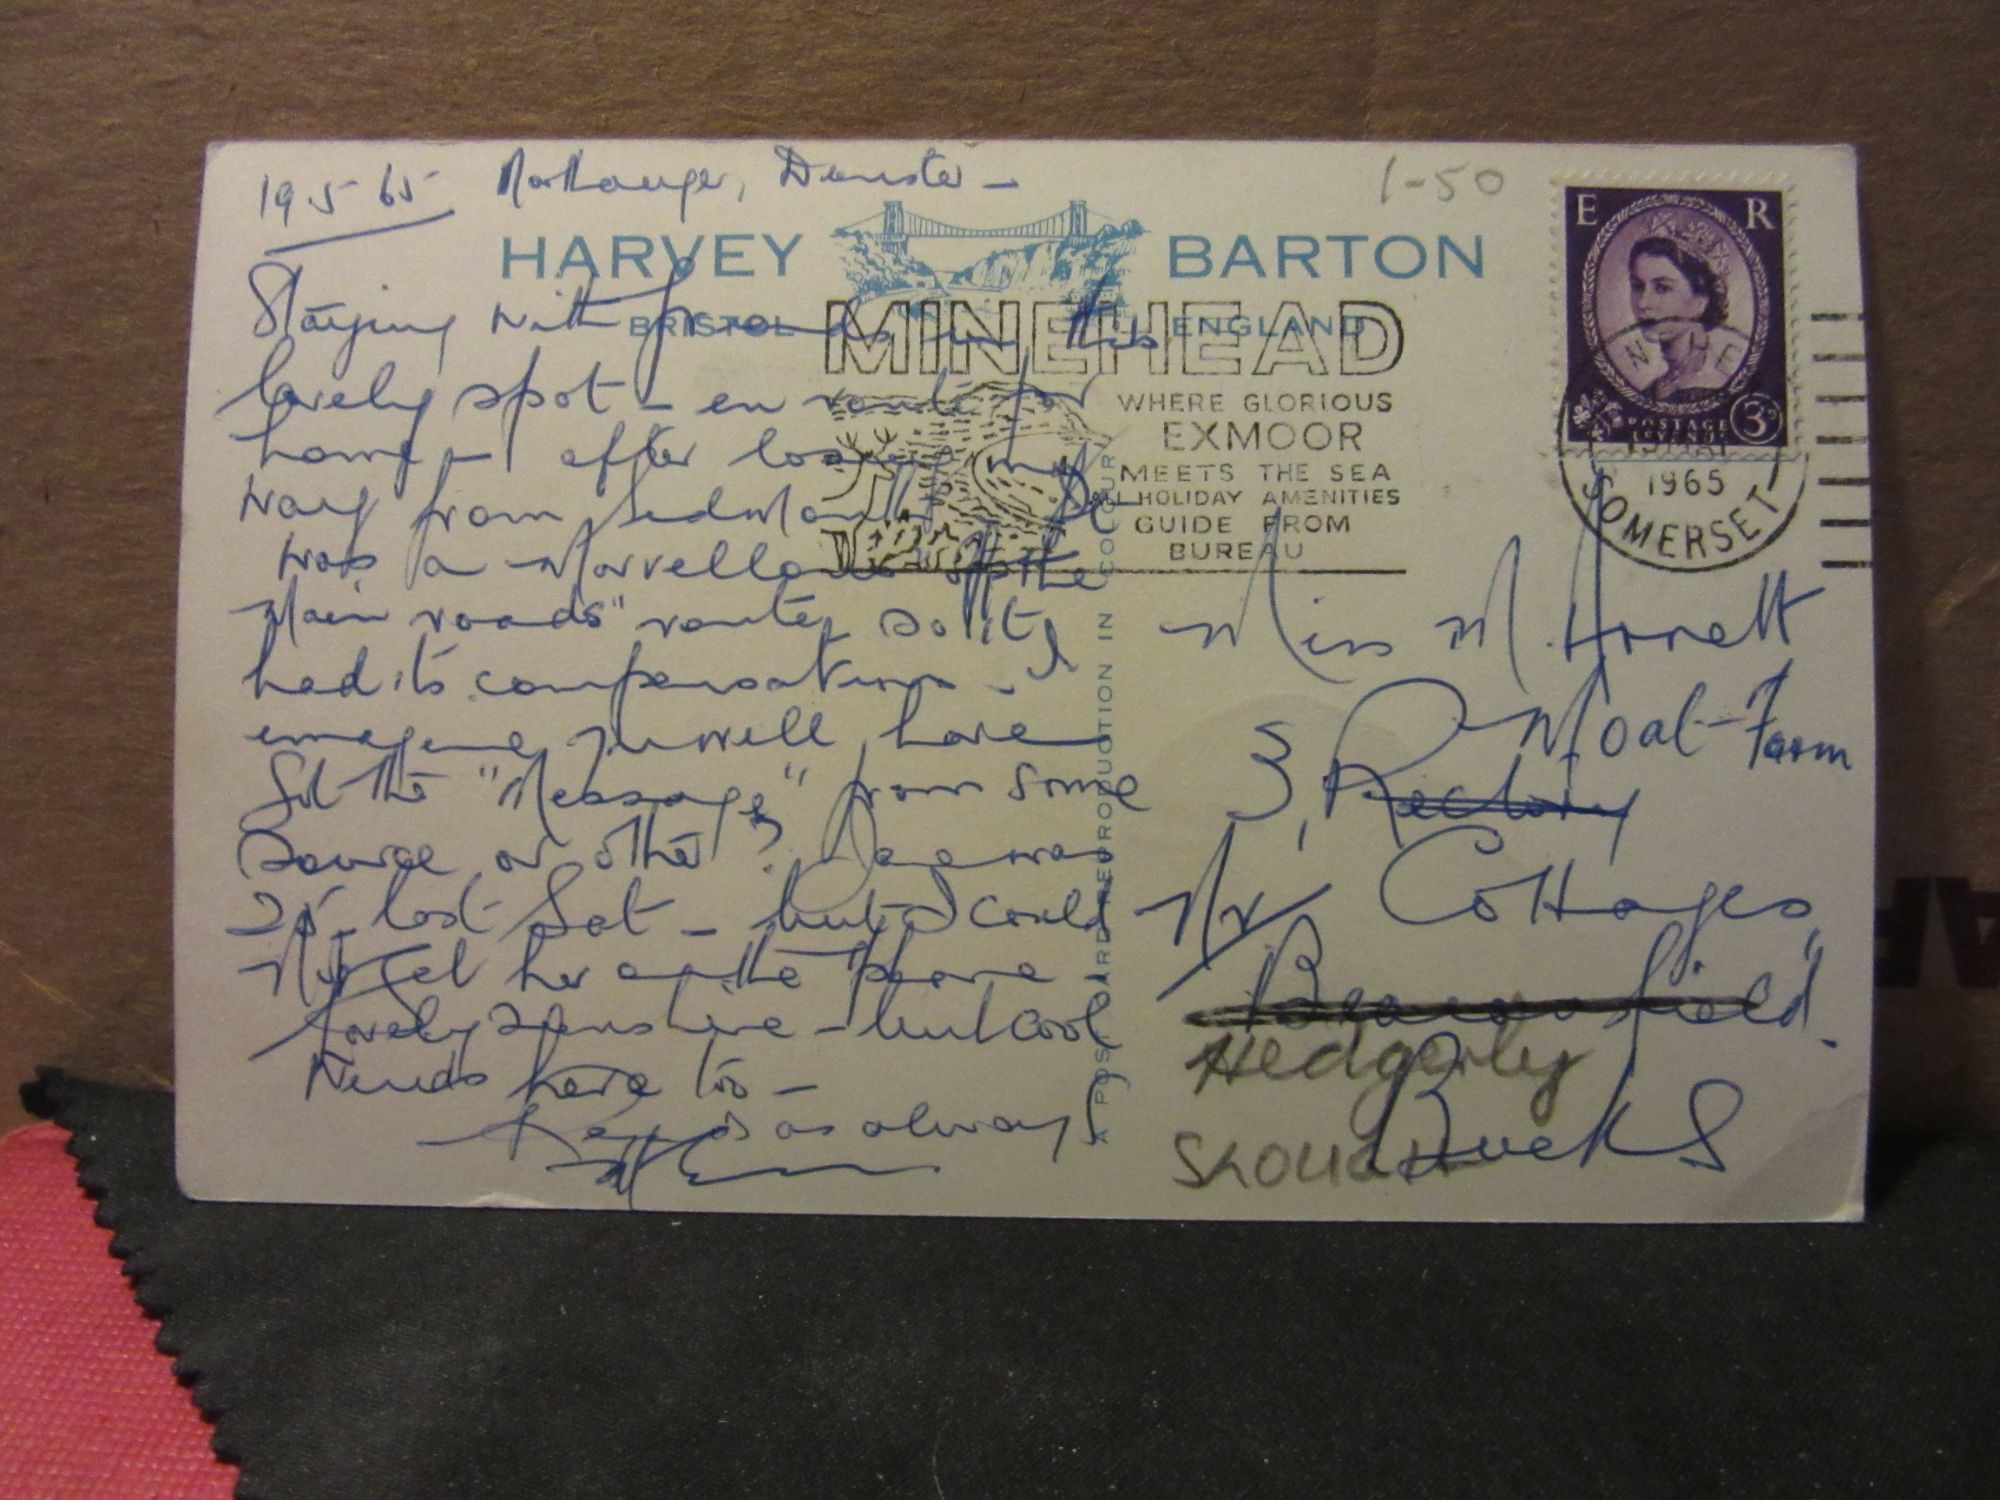 19.5.65 Dunster -
1-50
HARVEY BARTON
BRISTOL ENGLAND
Staying with friends in this
lovely spot - en route for
home - after losing my
way from Sidmouth. It
was a marvellous "off the
Main roads" route, so it
had its compensations - I
imagine you will have
Got the "Message" from some
source or other? Jane was
25 last Sat - but I could
Not get her on the phone
lovely sunshine - but cool
Winds here too -
as always
MINEHEAD
WHERE GLORIOUS
EXMOOR
MEETS THE SEA
ALL HOLIDAY AMENITIES
GUIDE FROM
BUREAU
E R
POSTAGE
REVENUE
3D
MINEHEAD
19 MAY
1965
SOMERSET
A POSTCARD REPRODUCTION IN COLOUR
Miss M. Arnett
Moat-Farm
3, Rectory
Cottages,
Nr Beaconsfield.
Hedgerley
Bucks
SLOUGH